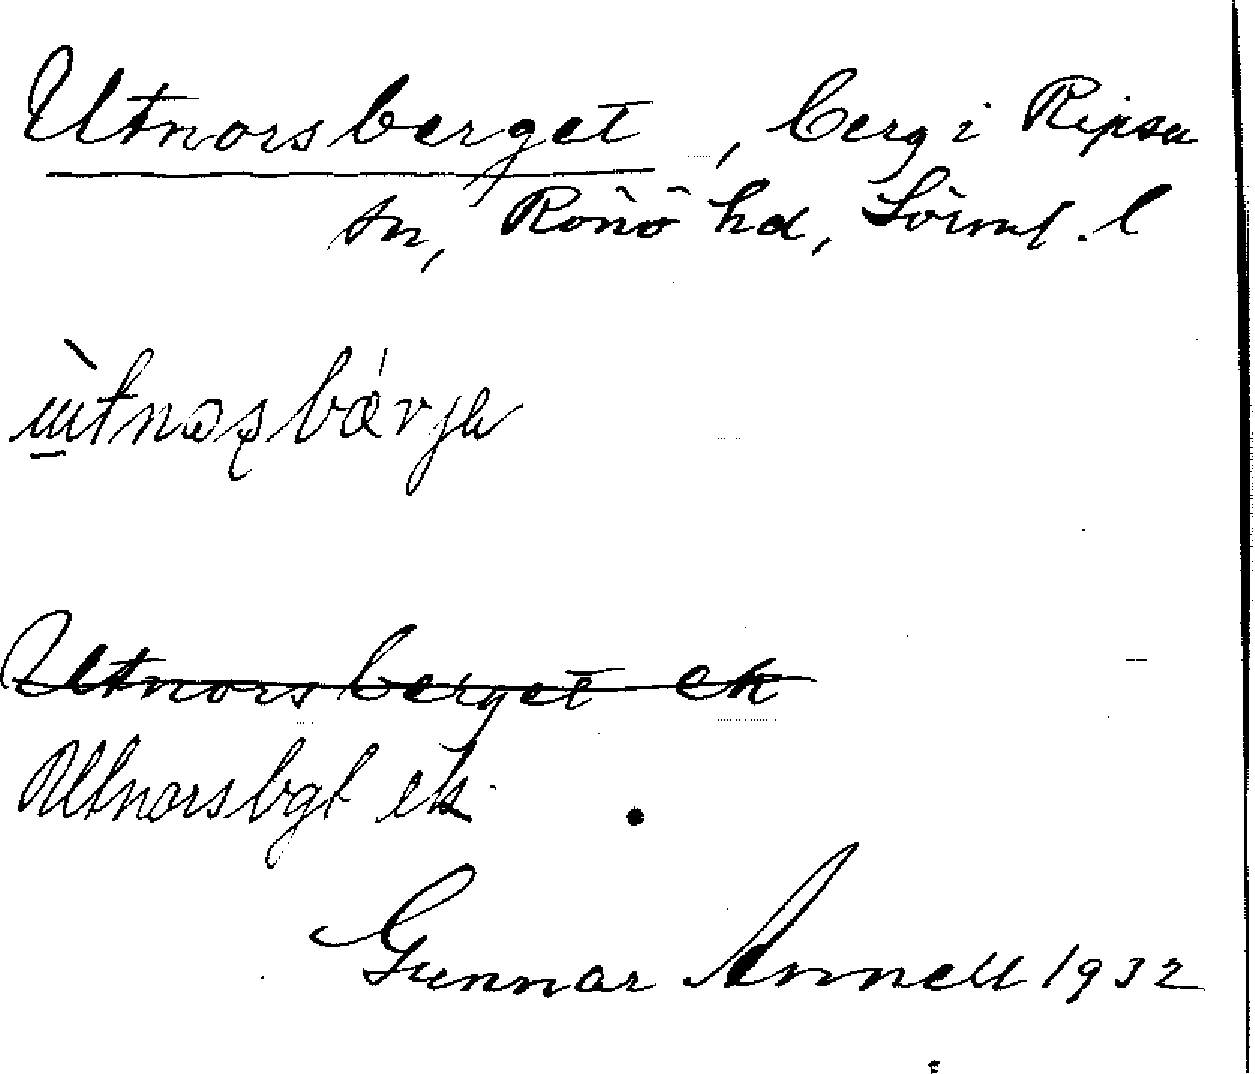 Utnorsberget, berg i Ripsa
sn, Rönö hd, Sörml. l
Utnorsberget ek
Utnorsbgt ek.
Gunnar Annell 1932